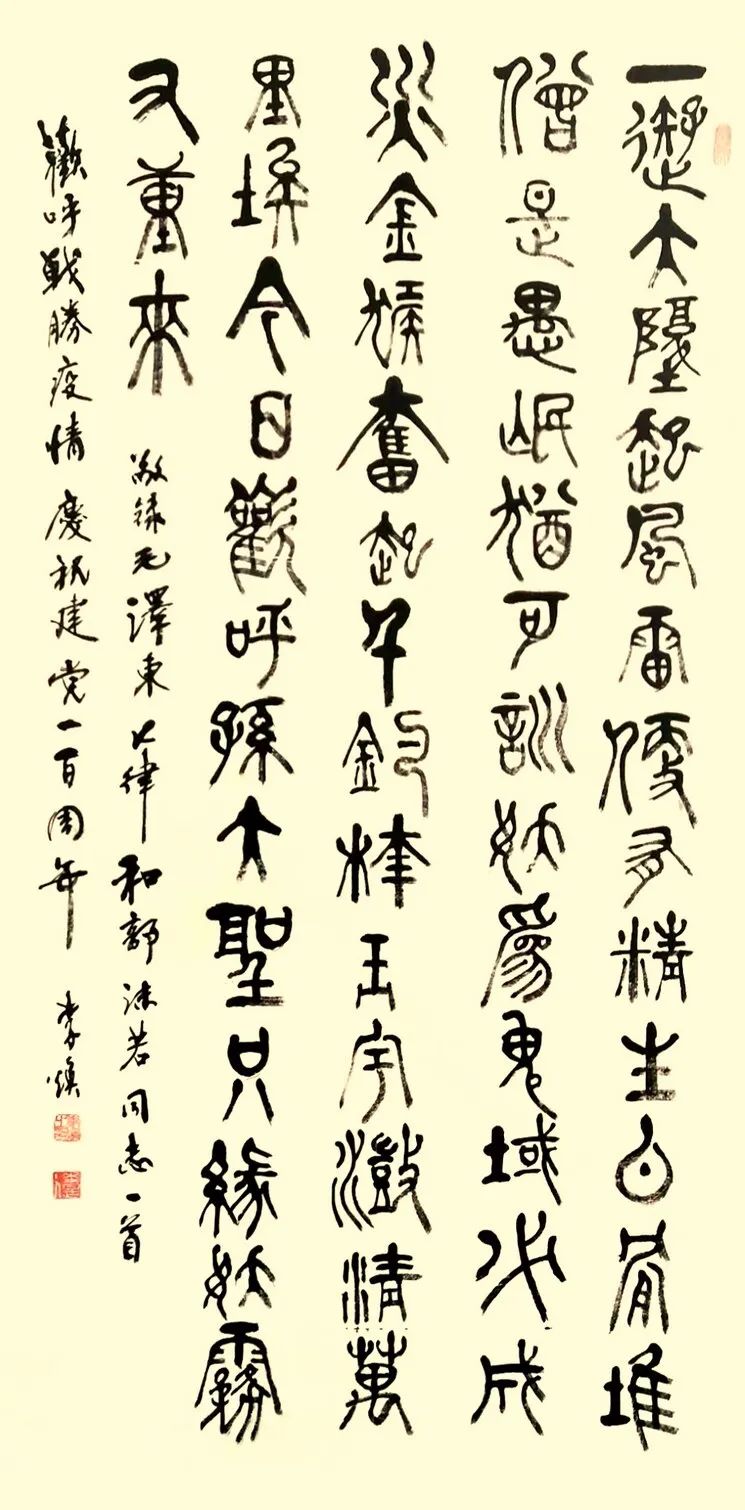 一從大墬起風雷便有精生白骨堆
僧是愚岷猶可訓妖為鬼域必成
災金猴奮起千鈞棒玉宇澂清萬
里埃今日歡呼孫大聖只緣妖霧
又重來 敬錄毛澤東七律和郭沫若同志一首
歡呼戰勝疫情慶祝建党一百周年 李焕